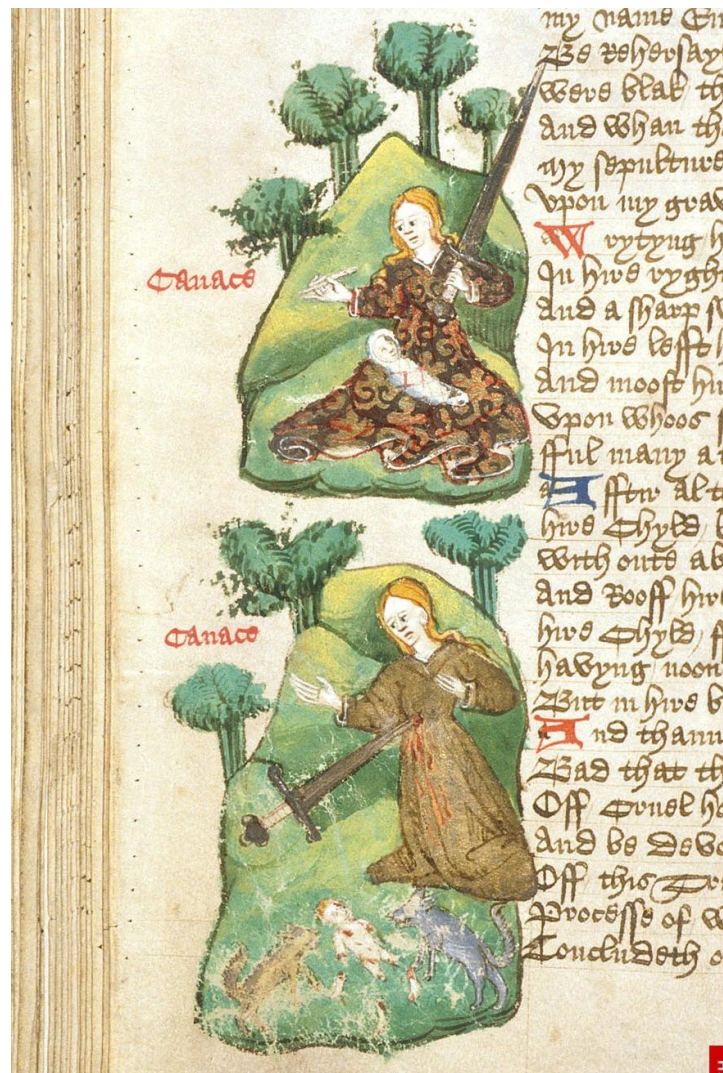 Canace
Canace
my name
Be rehersay
were blak th
And whan th
my sepulture
Vpon my grav
Wrytyng h
In hire ryght
And a sharp s
In hire lefft h
And moost hir
Vpon whoos
fful many a
Afftir al t
hire Chyld
with oute ab
And Rooff hir
hire Chyld s
havyng noon
But in hire b
And thann
Bad that th
Off cruel h
And be Devo
Off this
Processe of w
Concludeth o